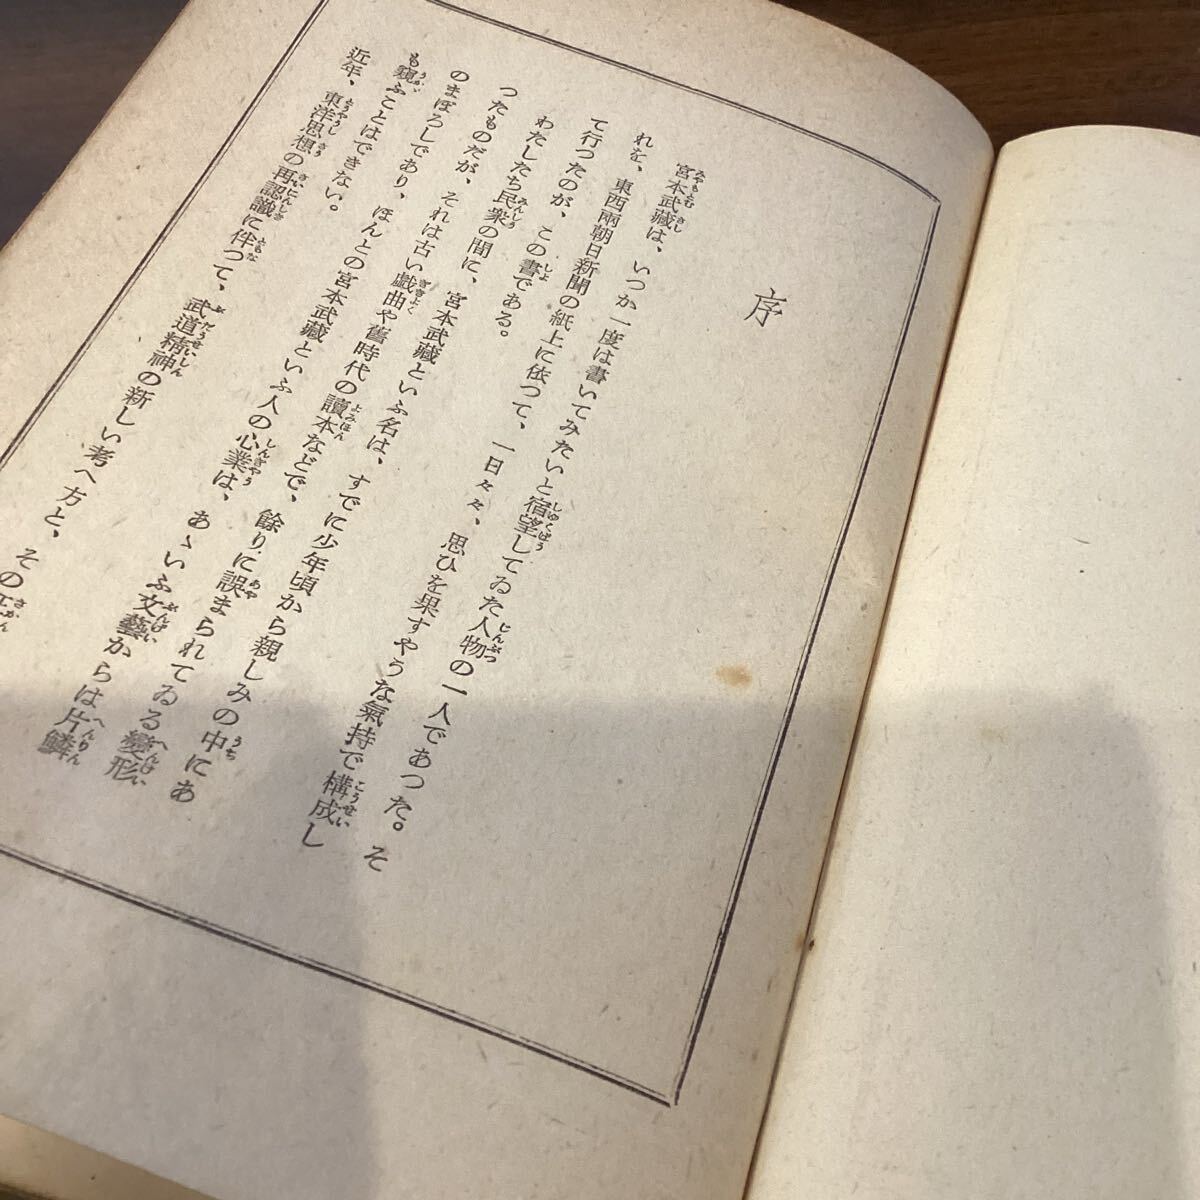 序
宮本武藏は、いつか一度は書いてみたいと宿望してゐた人物の一人であつた。そ
れを、東西兩朝日新聞の紙上に依つて、一日々々、思ひを果すやうな氣持で構成し
て行つたのが、この書である。
わたしたち民衆の間に、宮本武藏といふ名は、すでに少年頃から親しみの中にあ
つたものだが、それは古い戲曲や舊時代の讀本などで、餘りに誤まられてゐる變形
のまぼろしであり、ほんとの宮本武藏といふ人の心業は、あゝいふ文藝からは片鱗
も窺ふことはできない。
近年、東洋思想の再認識に伴つて、武道精神の新しい考へ方と、その